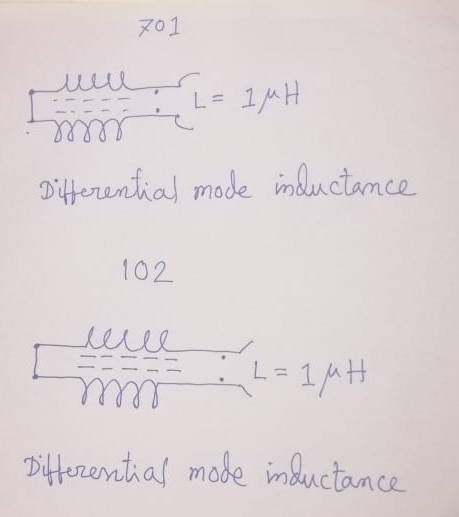 701
L = 1 μH
Differential mode inductance
102
L = 1 μH
Differential mode inductance